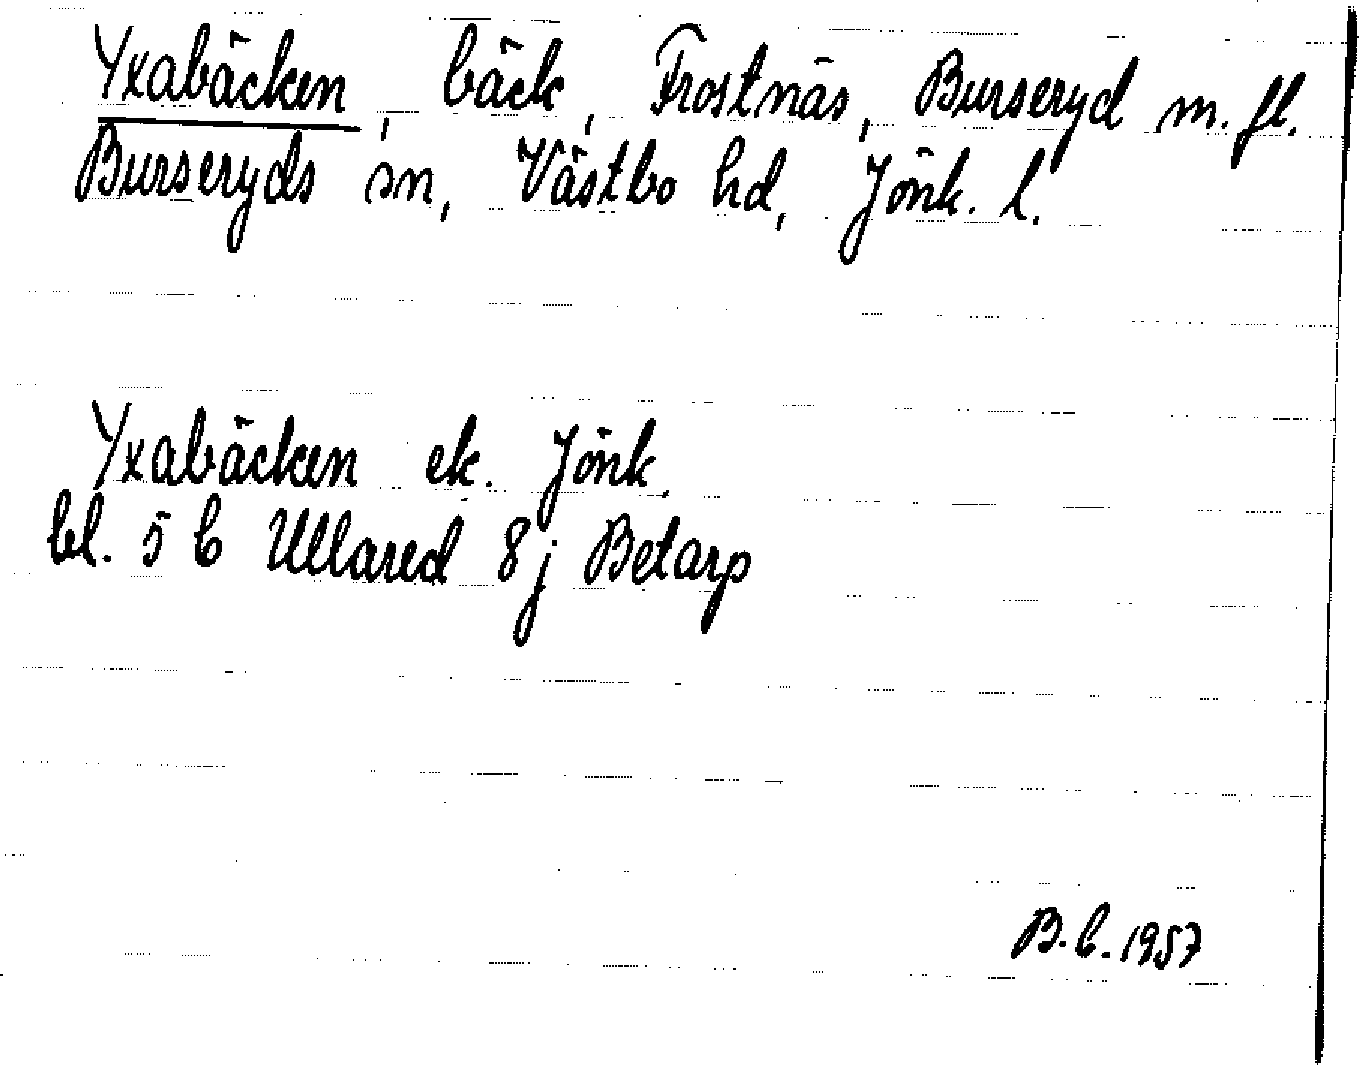 Yxabäcken, bäck, Frostnäs, Burseryd m. fl.
Burseryds sn, Västbo hd, Jönk. l.
Yxabäcken ek. Jönk.
bl. 5 b Ullared 8 j Betarp
B.b. 1957